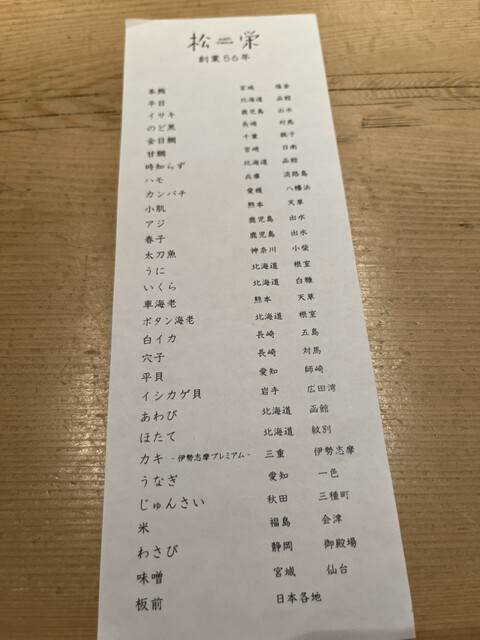 松二栄
創業56年
本鮪 宮城 塩釜
平目 北海道 函館
イサキ 鹿児島 出水
のど黒 長崎 対馬
金目鯛 千葉 銚子
甘鯛 宮崎 日南
時知らず 北海道 函館
ハモ 兵庫 淡路島
カンパチ 愛媛 八幡浜
小肌 熊本 天草
アジ 鹿児島 出水
春子 鹿児島 出水
太刀魚 神奈川 小柴
うに 北海道 根室
いくら 北海道 白糠
車海老 熊本 天草
ボタン海老 北海道 根室
白イカ 長崎 五島
穴子 長崎 対馬
平貝 愛知 師崎
イシカゲ貝 岩手 広田湾
あわび 北海道 函館
ほたて 北海道 紋別
カキ -伊勢志摩プレミアム- 三重 伊勢志摩
うなぎ 愛知 一色
じゅんさい 秋田 三種町
米 福島 会津
わさび 静岡 御殿場
味噌 宮城 仙台
板前 日本各地